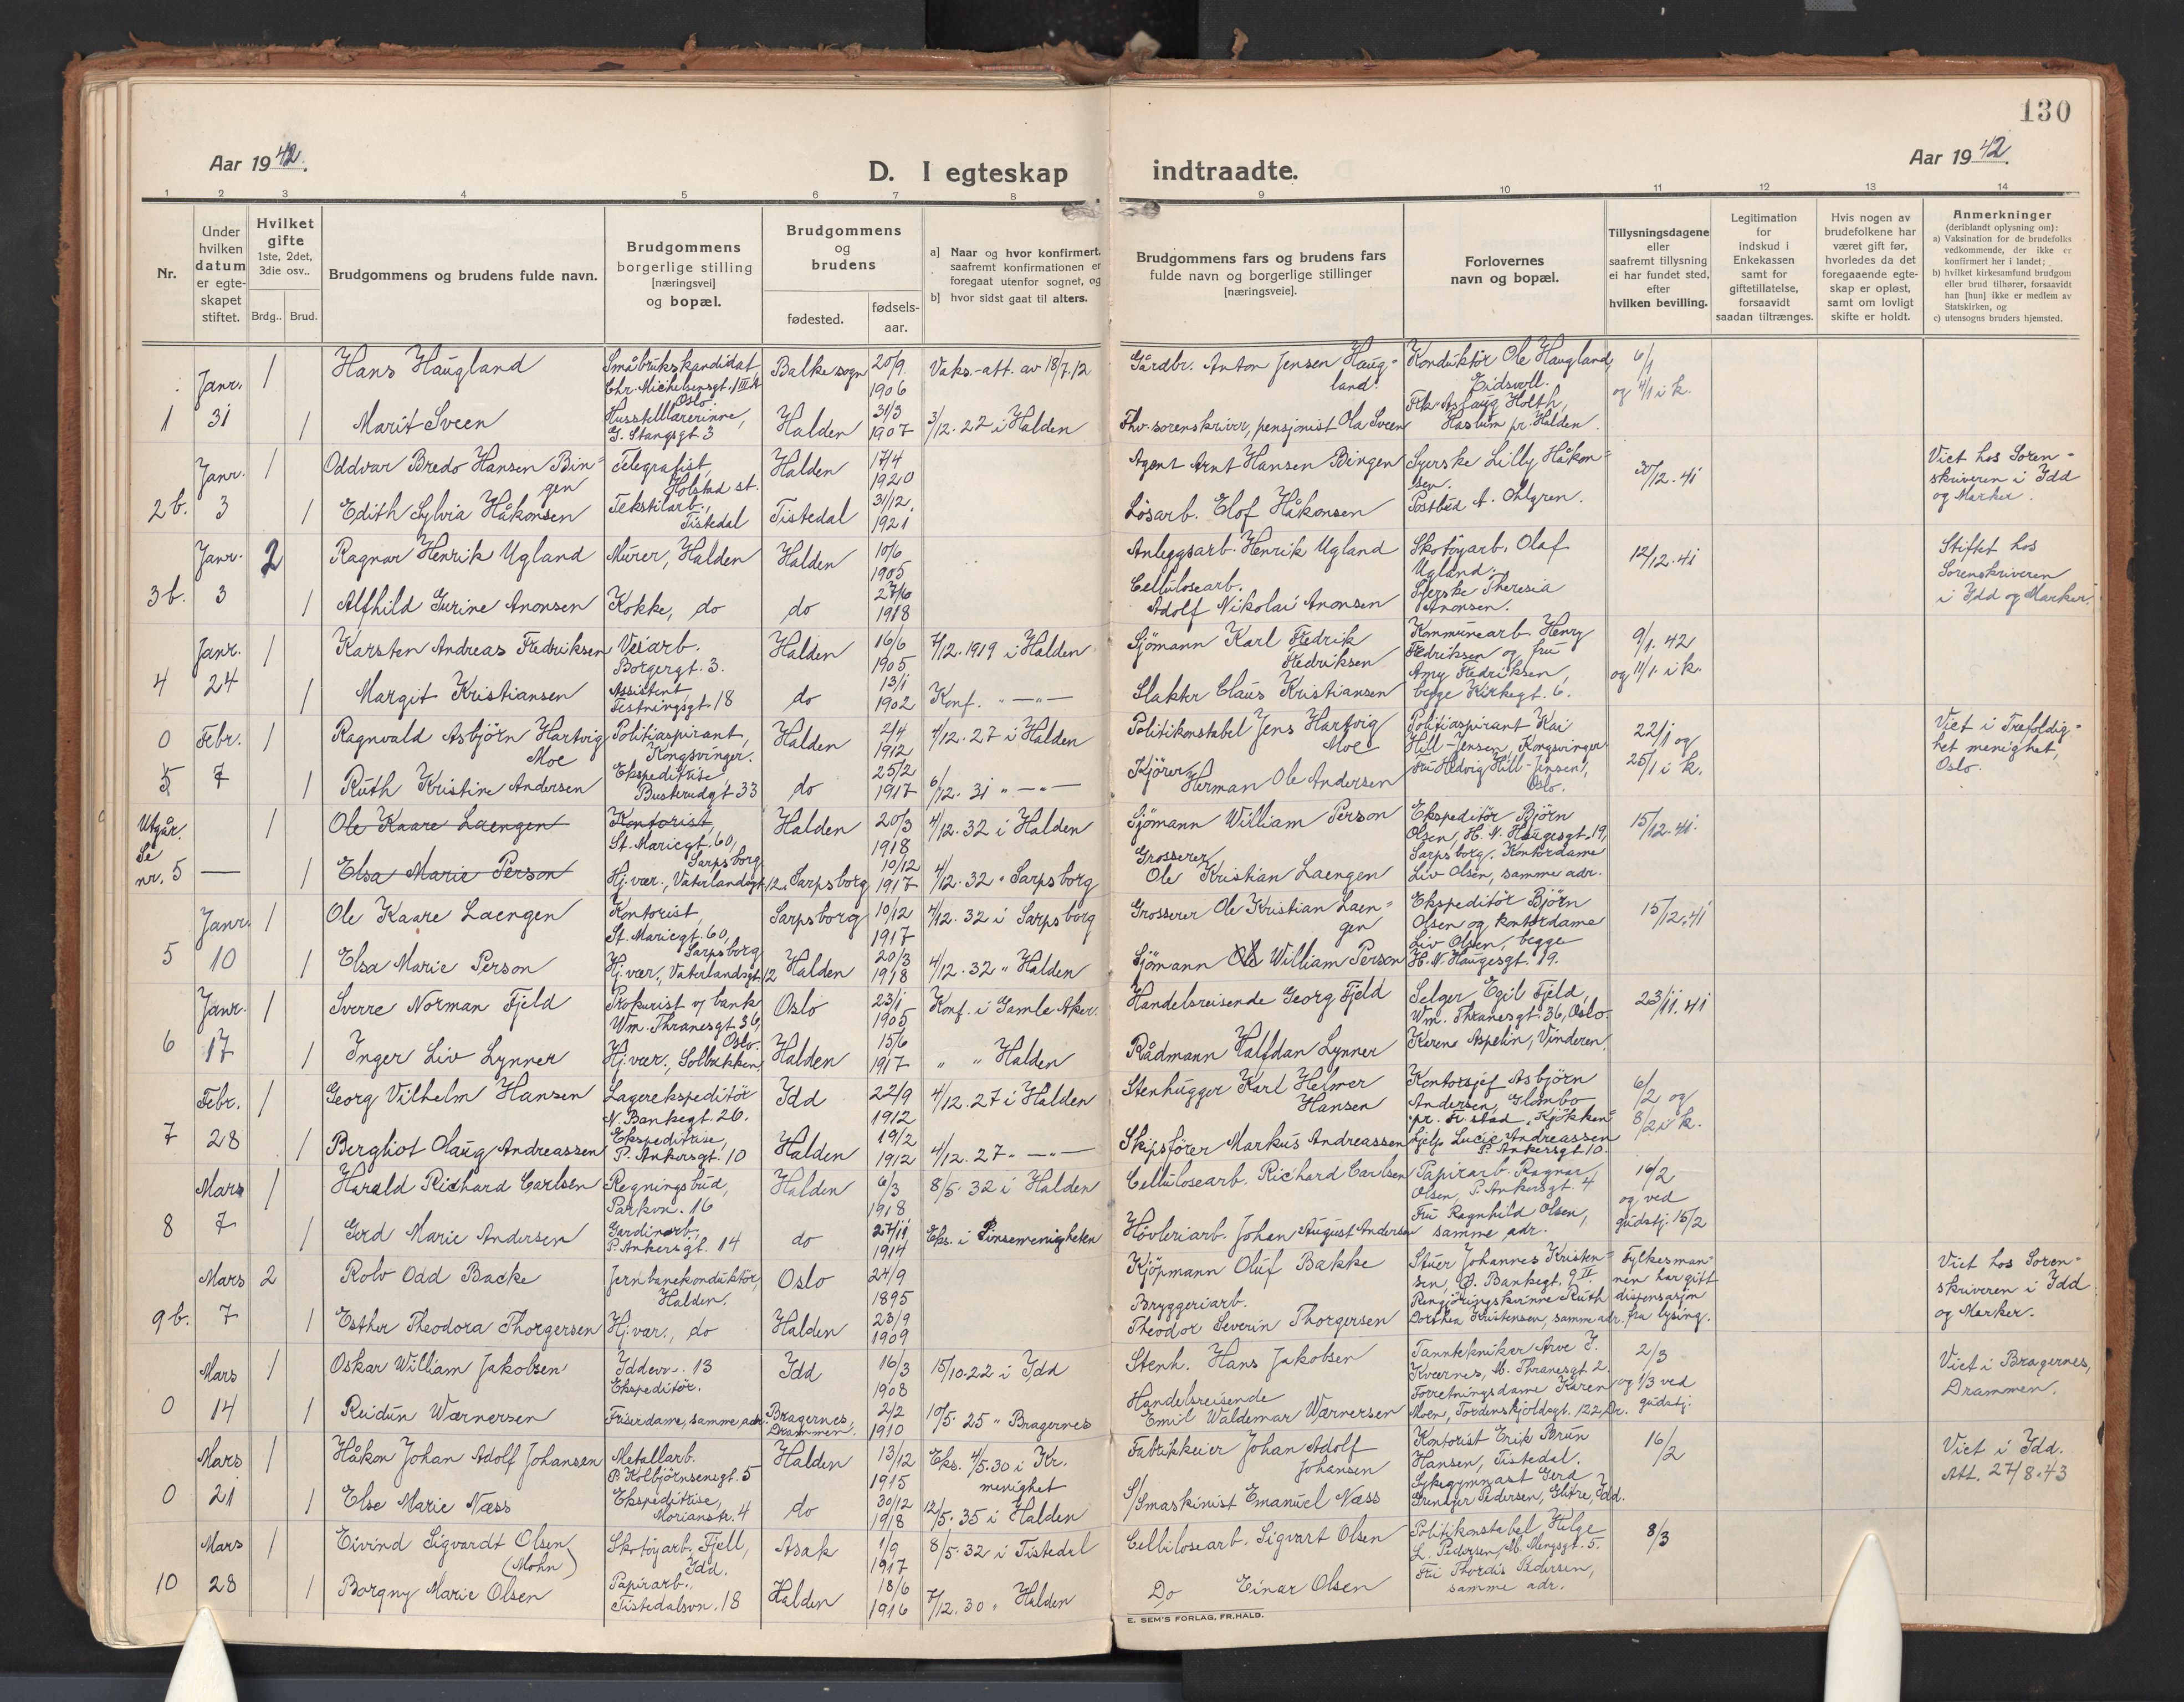 130
Aar 1942.
D. I egteskap indtraadte.
Aar 1942.
1 2 3 4 5 6 7 8 9 10 11 12 13 14
Nr.
Under hvilken datum er egteskapet stiftet.
Hvilket gifte 1ste, 2det, 3die osv..
Brdg.. Brud.
Brudgommens og brudens fulde navn.
Brudgommens borgerlige stilling [næringsvei] og bopæl.
Brudgommens og brudens
fødested.
fødselsaar.
a] Naar og hvor konfirmert, saafremt konfirmationen er foregaat utenfor sognet, og
b] hvor sidst gaat til alters.
Brudgommens fars og brudens fars fulde navn og borgerlige stillinger [næringsveie].
Forlovernes navn og bopæl.
Tillysningsdagene eller saafremt tillysning ei har fundet sted, efter hvilken bevilling.
Legitimation for indskud i Enkekassen samt for giftetillatelse, forsaavidt saadan tiltrænges.
Hvis nogen av brudefolkene har været gift før, hvorledes da det foregaaende egteskap er opløst, samt om lovligt skifte er holdt.
Anmerkninger (deriblandt oplysning om):
a) Vaksination for de brudefolks vedkommende, der ikke er konfirmert her i landet;
b) hvilket kirkesamfund brudgom eller brud tilhører, forsaavidt han [hun] ikke er medlem av Statskirken, og
c) utensogns bruders hjemsted.
Janr. 1 Hans Haugland Småbrukskandidat Chr. Michelsensgt. 1 III Oslo. Balke sogn 20/9 1906 Vaks.-att. av 18/7.12 Gårdbr. Anton Jensen Haugland. Konduktör Ole Haugland, Eidsvoll. 6/1 og 4/1 i k.
1 31 1 Marit Sveen Husstellærerinne, G. Stangsgt. 3 Halden 31/3 1907 3/12.22 i Halden Fhv. sorenskriver, pensjonist Ola Sveen Frk. Aslaug Holth, Haslum pr. Halden.
Janr. 1 Oddvar Bredo Hansen Bingen Telegrafist, Holstad st. Halden 17/4 1920 Agent Arnt Hansen Bingen Syerske Lilly Håkonsen. 30/12.41 Viet hos Sorenskriveren i Idd og Marker.
2 b. 3 1 Edith Sylvia Håkonsen Tekstilarb., Tistedal Tistedal 31/12. 1921 Lösarb. Elof Håkonsen Postbud A. Ohlgren.
Janr. 2 Ragnar Henrik Ugland Murer, Halden Halden 10/6 1905 Anleggsarb. Henrik Ugland Skotöyarb. Olaf Ugland. 12/12.41 Stiftet hos Sorenskriveren i Idd og Marker.
3 b. 3 1 Alfhild Gurine Aronsen Kokke, do do 27/6 1918 Cellulosearb. Adolf Nikolai Aronsen Syerske Theresia Aronsen.
Janr. 1 Karsten Andreas Fredriksen Veiarb. Borgergt. 3. Halden 16/6 1905 7/12.1919 i Halden Sjömann Karl Fredrik Fredriksen Kommunearb. Henry Fredriksen og fru 9/1.42 og 11/1. i k.
4 24 1 Margit Kristiansen Assistent Festningsgt. 18 do 13/1 1902 Konf. " — " — Slakter Claus Kristiansen Amy Fredriksen, begge Kirkegt. 6.
0 Febr. 1 Ragnvald Asbjörn Hartvig Moe Politiaspirant, Kongsvinger. Halden 2/4 1912 4/12.27 i Halden Politikonstabel Jens Hartvig Moe Politiaspirant Kai Hill-Jensen, Kongsvinger 22/1 og 25/1 i k. Viet i Trefoldighet menighet, Oslo.
5 7 1 Ruth Kristine Andersen Ekspeditrise, Busterudgt. 33 do 25/2 1917 6/12.31 " — " — Kjörer Herman Ole Andersen Fru Hedvig Hill-Jensen, Oslo.
Utgår. Se nr. 5 1 Ole Kaare Laengen Kontorist, St. Mariegt. 60, Sarpsborg Halden 20/3 1918 4/12.32 i Halden Sjömann William Person Ekspeditör Björn Olsen, H. N. Haugesgt. 19, Sarpsborg. 15/12.41.
— 1 Elsa Marie Person Hj.vær., Vaterlandsgt. 12. Sarpsborg 10/12 1917 4/12.32 " Sarpsborg Grosserer Ole Kristian Laengen Kontordame Liv Olsen, samme adr.
Janr. 1 Ole Kaare Laengen Kontorist, St. Mariegt. 60, Sarpsborg Sarpsborg 10/12 1917 4/12.32 i Sarpsborg Grosserer Ole Kristian Laengen Ekspeditör Björn Olsen og kontordame Liv Olsen, begge 15/12.41
5 10 1 Elsa Marie Person Hj.vær., Vaterlandsgt. 12 Halden 20/3 1918 4/12.32 " Halden Sjömann William Person H. N. Haugesgt. 19.
Janr. 1 Sverre Norman Fjeld Prokurist v/ bank Wm. Thranesgt. 36, Oslo. Oslo 23/1 1905 Konf. i Gamle Aker. Handelsreisende Georg Fjeld Selger Egil Fjeld, Wm. Thranesgt. 36, Oslo. 23/11.41
6 17 1 Inger Liv Lynner Hj.vær., Solbakken, Halden 15/6 1917 " " Halden Rådmann Halfdan Lynner Karene Aspelin, Vinderen.
Febr. 1 Georg Vilhelm Hansen Lagerekspeditör N. Bankegt. 26. Idd 22/9 1912 4/12.27 i Halden Stenhugger Karl Helmer Hansen Kontorsjef Asbjörn Andersen, Glombo pr. Fr.stad. 6/2 og 8/2 i k.
7 28 1 Bergliot Olaug Andreassen Ekspeditrise, P. Ankersgt. 10 Halden 19/2 1912 4/12.27 " — " — Skipsförer Markus Andreassen Kjökkenhjelp Lucie Andreassen P. Ankersgt. 10.
Mars 1 Harald Richard Carlsen Regningsbud, Parkvn. 16 Halden 6/3 1918 8/5.32 i Halden Cellulosearb. Richard Carlsen Papirarb. Ragnar Olsen, P. Ankersgt. 4 16/2 og ved gudstj. 15/2
8 7 1 Gerd Marie Andersen Gardinarb., P. Ankersgt. 14 do 27/11 1914 Eks. i Pinsemenigheten Hövleriarb. Johan August Andersen Fru Ragnhild Olsen, samme adr.
Mars 2 Rolv Odd Backe Jernbanekonduktör, Halden. Oslo 24/9 1895 Kjöpmann Oluf Bakke Stuer Johannes Kristensen, Ö. Bankegt. 9 II. Fylkesmannen har gitt dispensasjon fra lysing. Viet hos Sorenskriveren i Idd og Marker.
9 b. 7 1 Esther Theodora Thorgersen Hj.vær., do Halden 23/9 1909 Bryggeriarb. Theodor Severin Thorgersen Rengjöringskvinne Ruth Dorthea Kristensen, samme adr.
Mars 1 Oskar William Jakobsen Iddevn. 13 Ekspeditör. Idd 16/3 1908 15/10.22 i Idd Stenh. Hans Jakobsen Tanntekniker Arve J. Kværnes, M. Thranesgt. 2. 2/3 og 1/3 ved gudstj. Viet i Bragernes, Drammen.
0 14 1 Reidun Wærnersen Friserdame, samme adr. Bragernes, Drammen. 2/2 1910 10/5 25 " Bragernes Handelsreisende Emil Waldemar Wærnersen Forretningsdame Karen Moen, Tordenskjoldsgt. 122, Dr.
Mars 1 Håkon Johan Adolf Johansen Metallarb. P. Kolbjörnsensgt. 5 Halden 13/12 1915 Eks. 4/5.30 i Kr. menighet Fabrikkeier Johan Adolf Johansen Kontorist Erik Brun Hansen, Tistedal. 16/2 Viet i Idd. Att. 27/8.43
0 21 1 Else Marie Næss Ekspeditrise, Morianstr. 4 do 30/12 1918 12/5.35 i Halden S/Smaskinist Emanuel Næss Sykegymnast Gerd Grenager Pedersen, Glitre, Idd.
Mars 1 Eivind Sigvardt Olsen (Mohn) Skotöyarb. Fjell, Idd. Asak 1/9 1917 8/5.32 i Tistedal Cellilosearb. Sigvart Olsen Politikonstabel Helge L. Pedersen, M. Mengsgt. 5. 8/3
10 28 1 Borgny Marie Olsen Papirarb., Tistedalsvn. 18 Halden 18/6 1916 7/12.30 " Halden Do Einar Olsen Fru Thordis Pedersen, samme adr.
E. SEM'S FORLAG, FR.HALD.